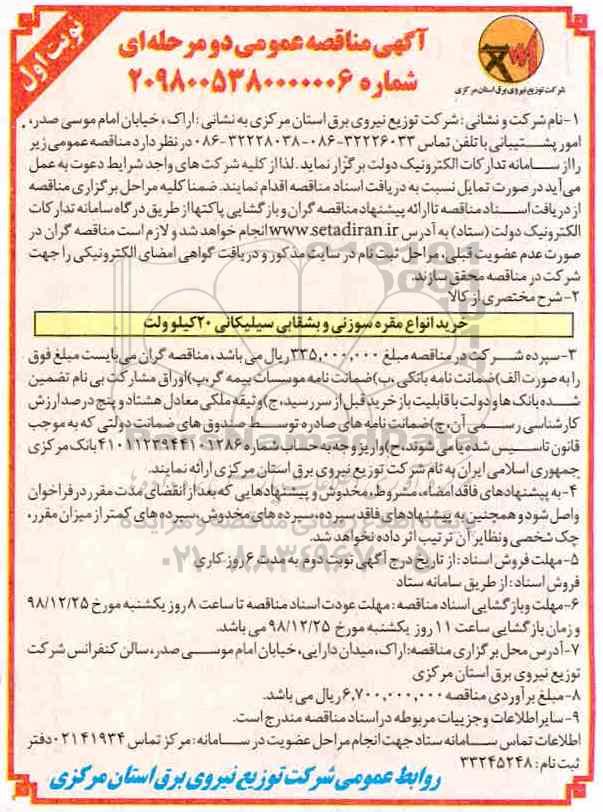 نوبت اول
آگهی مناقصه عمومی دو مرحله ای
شماره ۲۰۹۸۰۰۵۳۸۰۰۰۰۰۰۶
شرکت توزیع نیروی برق استان مرکزی
۱-نام شرکت و نشانی: شرکت توزیع نیروی برق استان مرکزی به نشانی: اراک، خیابان امام موسی صدر،
امور پشتیبانی با تلفن تماس ۳۲۲۲۶۰۳۳-۰۸۶-۳۲۲۲۸۰۳۸-۰۸۶ در نظر دارد مناقصه عمومی زیر
را از سامانه تدارکات الکترونیک دولت برگزار نماید. لذا از کلیه شرکت های واجد شرایط دعوت به عمل
می آید در صورت تمایل نسبت به دریافت اسناد مناقصه اقدام نمایند. ضمنا کلیه مراحل برگزاری مناقصه
از دریافت اسناد مناقصه تا ارائه پیشنهاد مناقصه گران و بازگشایی پاکتها از طریق درگاه سامانه تدارکات
الکترونیک دولت (ستاد) به آدرس www.setadiran.ir انجام خواهد شد و لازم است مناقصه گران در
صورت عدم عضویت قبلی، مراحل ثبت نام در سایت مذکور و دریافت گواهی امضای الکترونیکی را جهت
شرکت در مناقصه محقق سازند.
۲-شرح مختصری از کالا
خرید انواع مقره سوزنی و بشقابی سیلیکانی ۲۰ کیلو ولت
۳-سپرده شرکت در مناقصه مبلغ ۳۳۵،۰۰۰،۰۰۰ ریال می باشد، مناقصه گران می بایست مبلغ فوق
را به صورت الف)ضمانت نامه بانکی،ب)ضمانت نامه موسسات بیمه گر،پ)اوراق مشارکت بی نام تضمین
شده بانک ها و دولت با قابلیت باز خرید قبل از سررسید،ج)وثیقه ملکی معادل هشتاد و پنج درصد ارزش
کارشناسی رسمی آن،چ)ضمانت نامه های صادره توسط صندوق های ضمانت دولتی که به موجب
قانون تاسیس شده یا می شوند،ح)واریز وجه به حساب شماره ۴۱۰۱۱۲۳۹۴۴۱۰۱۲۸۶ بانک مرکزی
جمهوری اسلامی ایران به نام شرکت توزیع نیروی برق استان مرکزی ارائه نمایند.
۴-به پیشنهادهای فاقد امضاء، مشروط، مخدوش و پیشنهادهایی که بعد از انقضای مدت مقرر در فراخوان
واصل شود و همچنین به پیشنهادهای فاقد سپرده، سپرده های مخدوش، سپرده های کمتر از میزان مقرر،
چک شخصی و نظایر آن ترتیب اثر داده نخواهد شد.
۵-مهلت فروش اسناد: از تاریخ درج آگهی نوبت دوم به مدت ۶ روز کاری
فروش اسناد: از طریق سامانه ستاد
۶-مهلت و بازگشایی اسناد مناقصه: مهلت عودت اسناد مناقصه تا ساعت ۸ روز یکشنبه مورخ ۹۸/۱۲/۲۵
و زمان بازگشایی ساعت ۱۱ روز یکشنبه مورخ ۹۸/۱۲/۲۵ می باشد.
۷-آدرس محل برگزاری مناقصه:اراک، میدان دارایی، خیابان امام موسی صدر، سالن کنفرانس شرکت
توزیع نیروی برق استان مرکزی
۸-مبلغ برآوردی مناقصه ۶،۷۰۰،۰۰۰،۰۰۰ ریال می باشد.
۹-سایر اطلاعات و جزییات مربوطه در اسناد مناقصه مندرج است.
اطلاعات تماس سامانه ستاد جهت انجام مراحل عضویت در سامانه: مرکز تماس ۰۲۱۴۱۹۳۴ دفتر
ثبت نام: ۳۳۲۴۵۲۴۸
روابط عمومی شرکت توزیع نیروی برق استان مرکزی